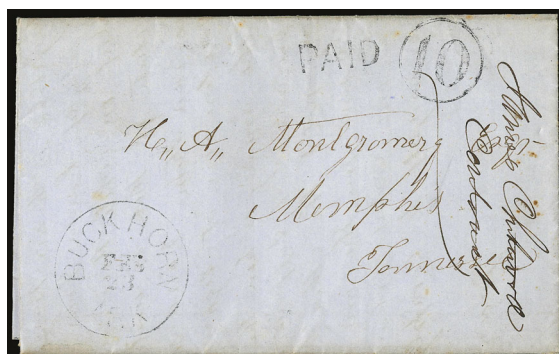 PAID 10
H,, A,, Montgomery Esqr
Memphis
Tennessee
BUCKHORN
FEB
23
ARK